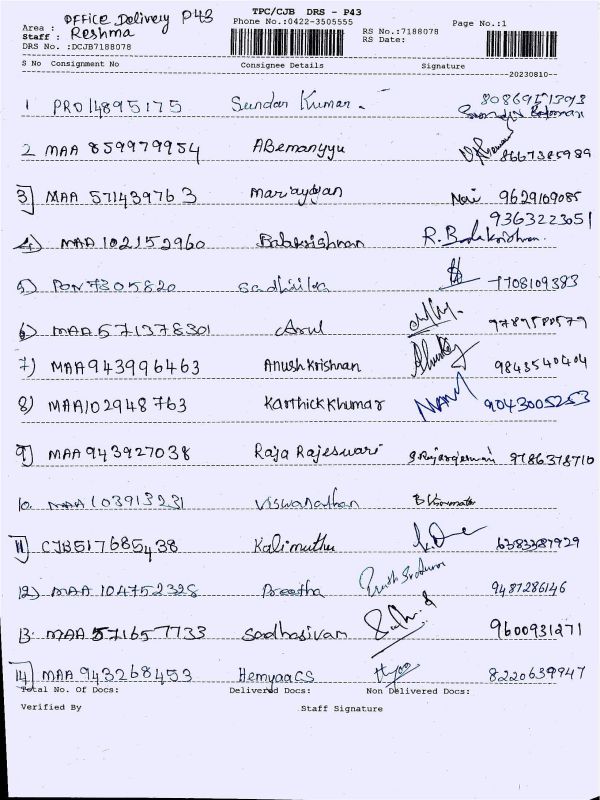 TPC/CJB DRS - P43
Area : Office Delivery P43
Phone No.:0422-3505555
Page No.:1
Staff : Reshma
RS No.:7188078
RS Date:
DRS No. :DCJB7188078
S No Consignment No Consignee Details Signature
--20230810--
1 PRO14895175 Sundar Kumar 
2 MAA 859979954 ABemanyyu 8667385989
3) MAA 571439763 Mariayappan Mari 9629109085
9363223051
4) MAA 102152960 Balakrishnan R. Balakrishnan.
5) PON 7305820 1708109383
6) MAA 571378301 Arul
7) MAA943996463 Anush Krishnan 9843540404
8) MAA102948763 Karthick Khumar MANI 9043005253
9) MAA 943927038 Raja Rajeswari 9786378710
10. MAA 103913231 Viswanathan
11) CJB517685438 Kalimuthu 6383387929
12) MAA 104752328 Preetha 9487286146
13. MAA 571657733 Sadhasivam 9600931271
14) MAA 943268453 HemyaaCS 8220639947
Total No. Of Docs: Delivered Docs: Non Delivered Docs:
Verified By Staff Signature